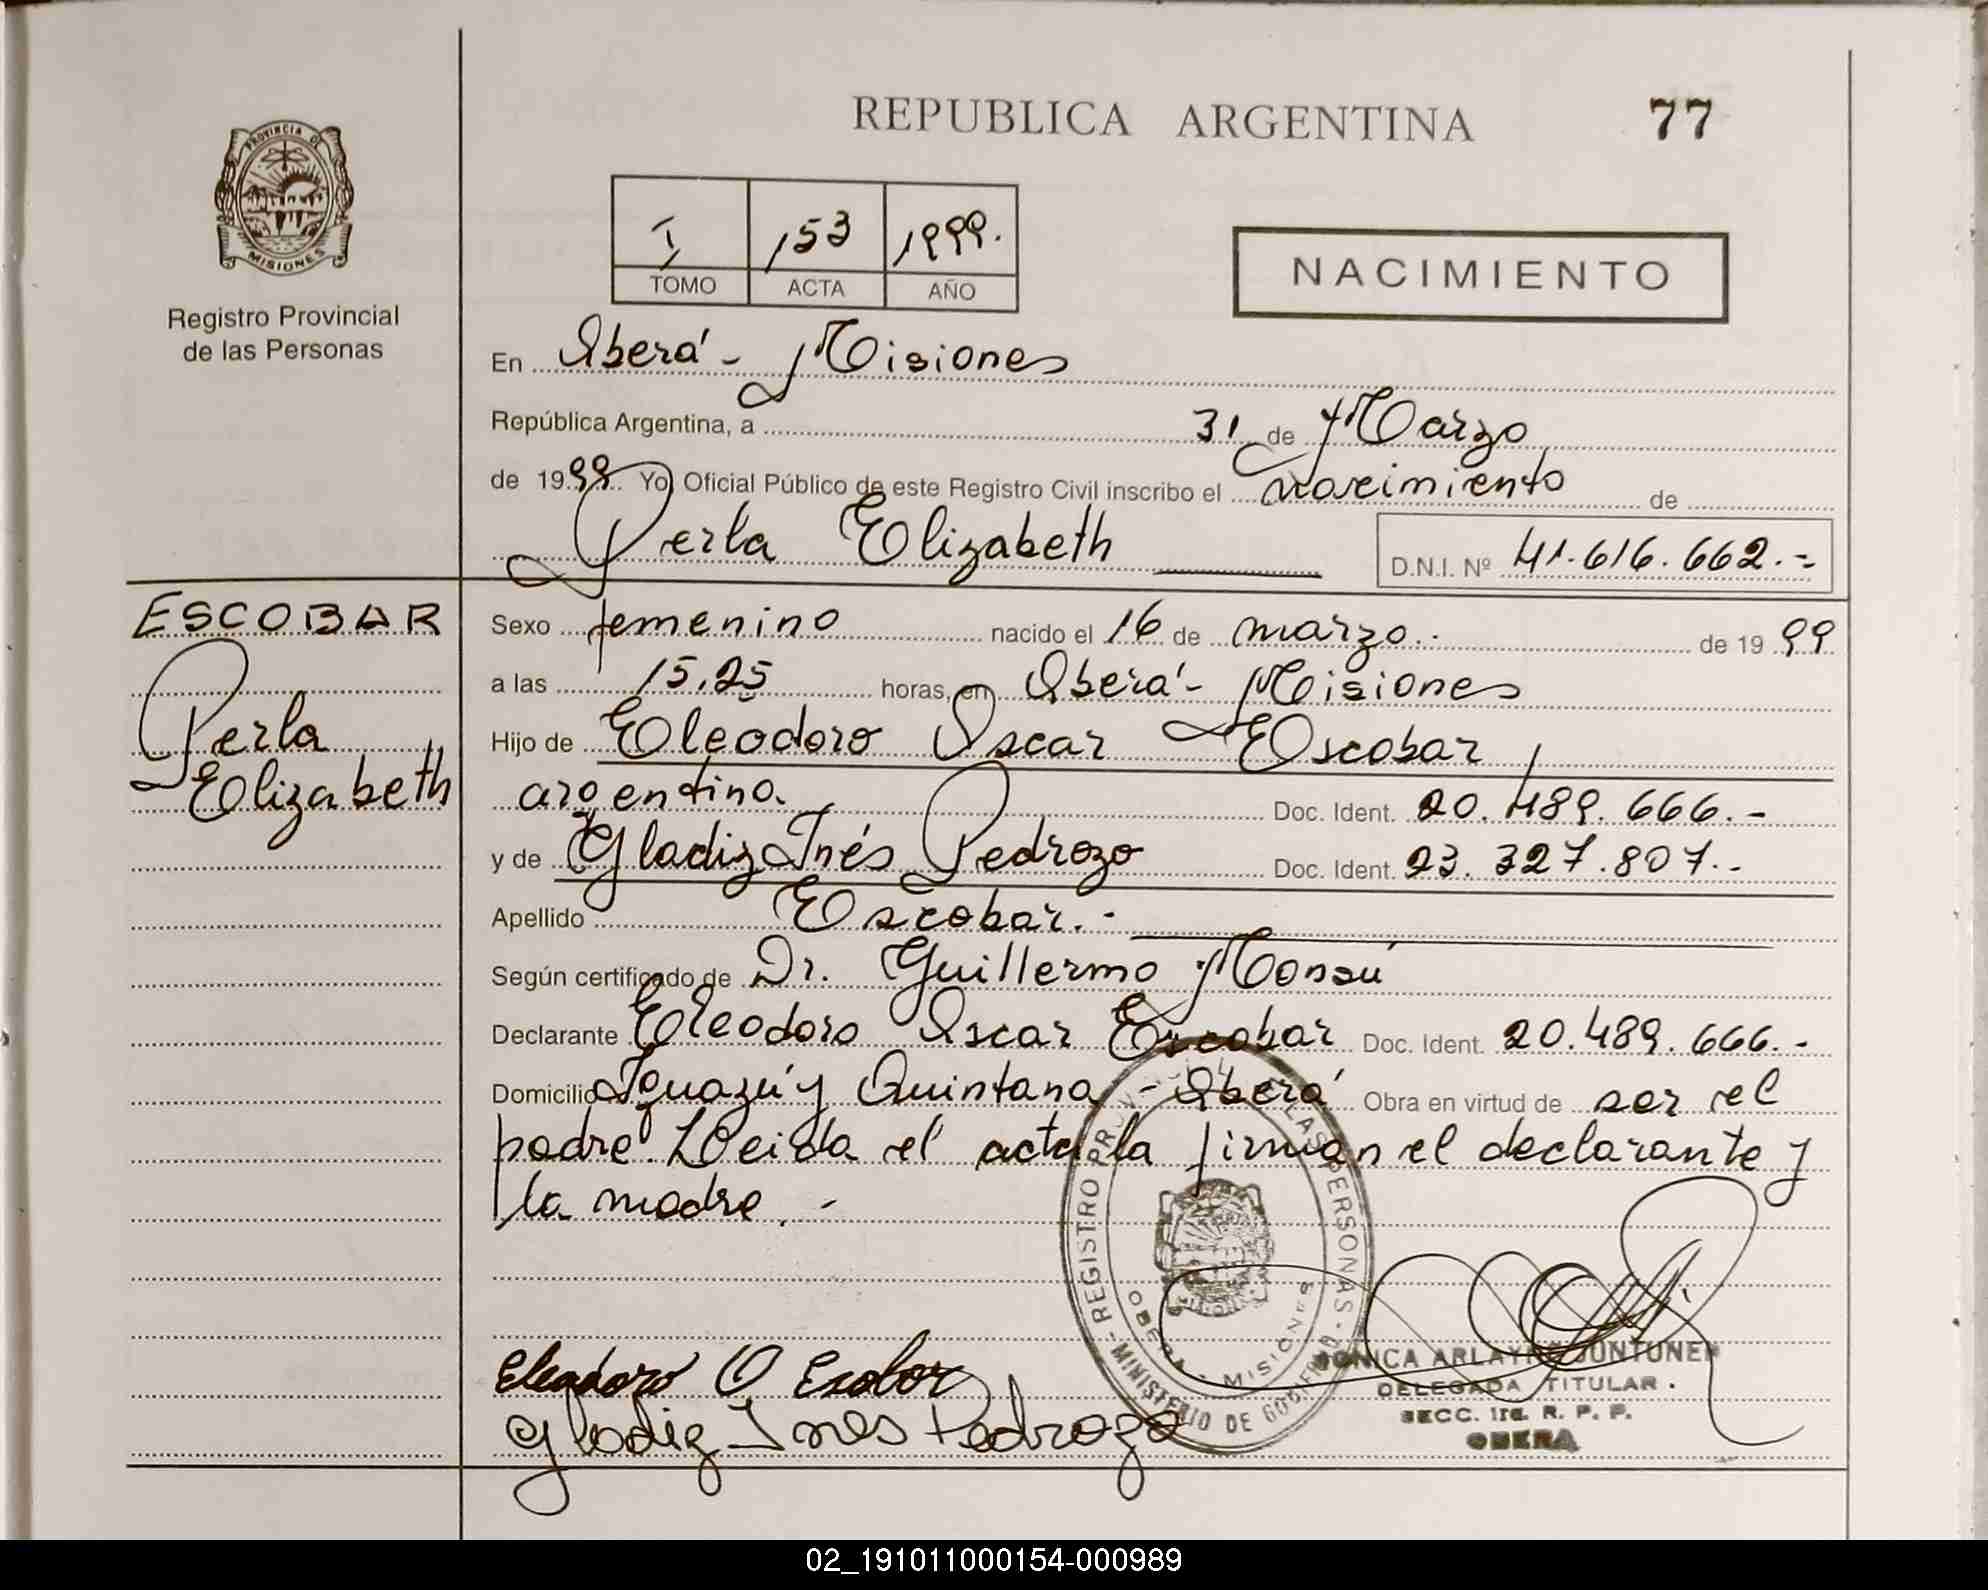 REPUBLICA ARGENTINA 77
PROVINCIA DE
MISIONES
Registro Provincial
de las Personas
I 153 1999.
TOMO ACTA AÑO
NACIMIENTO
En Oberá - Misiones
República Argentina, a 31 de Marzo
de 1999 Yo, Oficial Público de este Registro Civil inscribo el nacimiento de
Perla Elizabeth
D.N.I. Nº 41.616.662.-
ESCOBAR
Perla
Elizabeth
Sexo femenino nacido el 16 de marzo.. de 1999
a las 15,25 horas, en Oberá - Misiones
Hijo de Eleodoro Oscar Escobar,
argentino. Doc. Ident. 20.489.666.-
y de Gladiz Inés Pedrozo Doc. Ident. 23.327.807.-
Apellido Escobar.-
Según certificado de Dr. Guillermo Monsú
Declarante Eleodoro Oscar Escobar Doc. Ident. 20.489.666.-
Domicilio Iguazú y Quintana - Oberá Obra en virtud de ser el
padre. Leida el acta la firman el declarante y
la madre.-
REGISTRO PROVINCIAL DE LAS PERSONAS -
MINISTERIO DE GOBIERNO
OBERA - MISIONES
Eleodoro O Escobar
Gladiz Ines Pedrozo
MONICA ARLAYNE JUNTUNEN
DELEGADA TITULAR.
SECC. 1ra. R. P. P.
OBERA
02_191011000154-000989